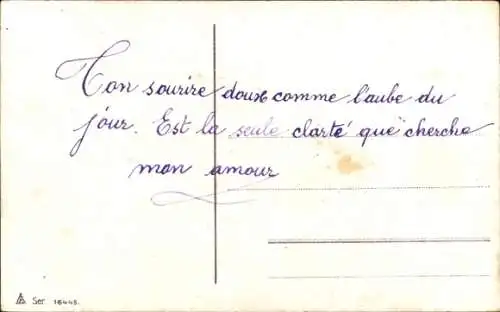 Ton sourire doux comme l'aube du
jour. Est la seule clarté que cherche
mon amour
Ser 16445.